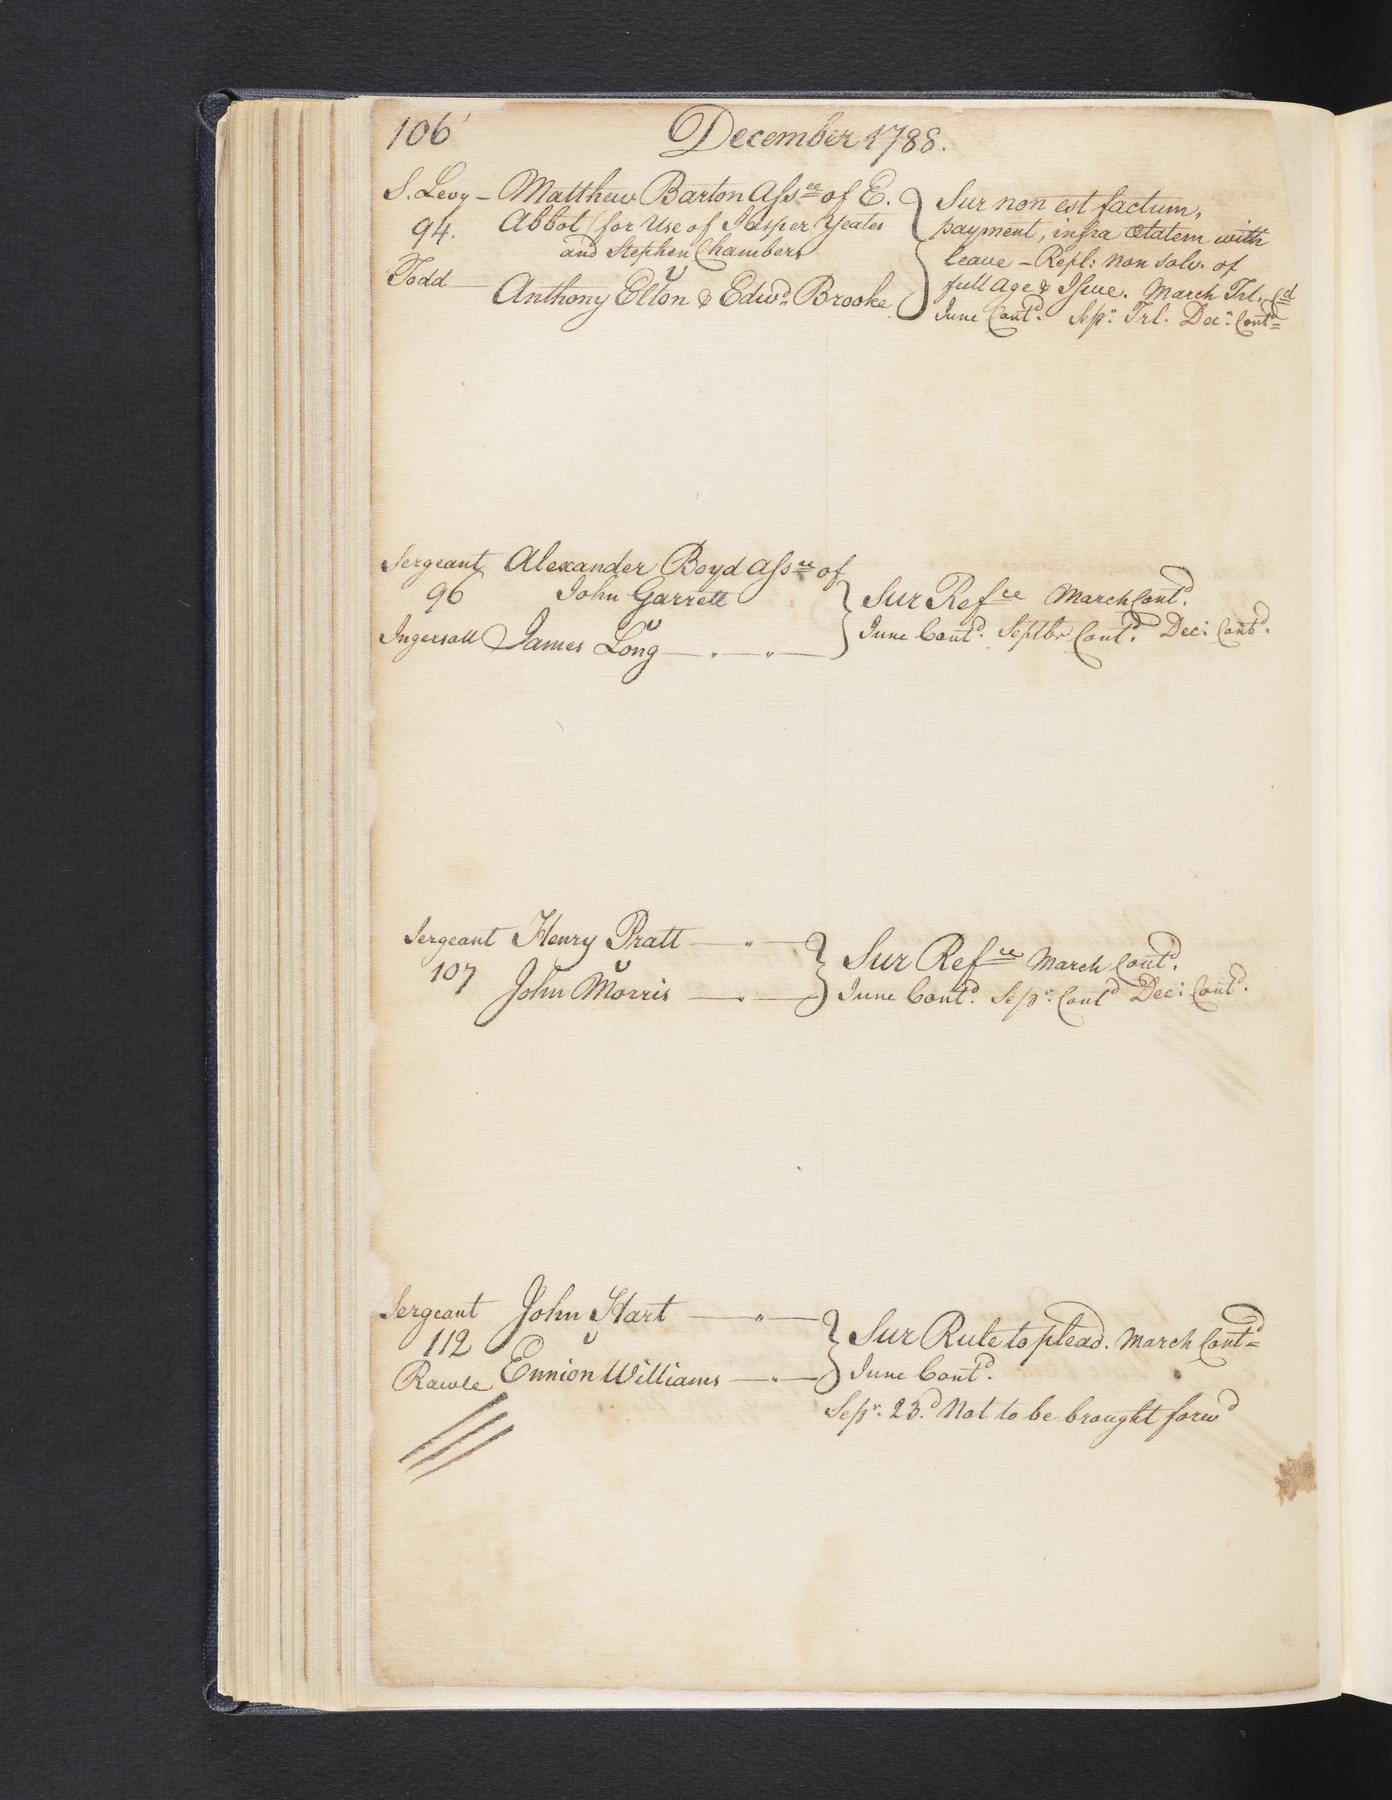 106 December 1788.
S. Levy - Matthew Barton Assee of E. Sur non est factum,
94. Abbot (for Use of Jasper Yeates payment, infra Ætatem with
and Stephen Chambers leave - Repl: non solv. of
v
Todd Anthony Elton & Edwd. Brooke full age & Issue. March Trl. Cd
June Contd. Sepr. Trl. Decr. Contd
Sergeant Alexander Boyd Assee of
96 John Garrett Sur Refce March Contd.
v
Ingersoll James Long June Contd. Septbr Contd. Dec: Contd.
Sergeant Henry Pratt Sur Refce March Contd.
107 v
John Morris June Contd. Sepr: Contd Dec: Contd.
Sergeant John Hart Sur Rule to plead. March Contd
112 v
Rawle Ennion Williams June Contd.
Sepr. 23.d Not to be brought forwd